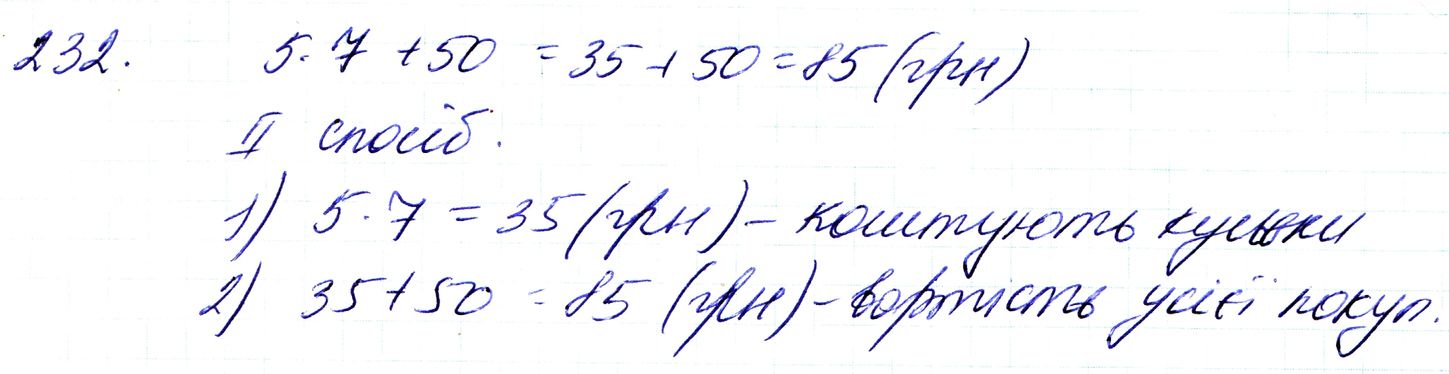 232. 5·7+50 = 35+50=85 (грн)
II спосіб.
1) 5·7 = 35 (грн) – коштують кульки
2) 35+50 = 85 (грн) – вартість усієї покуп.